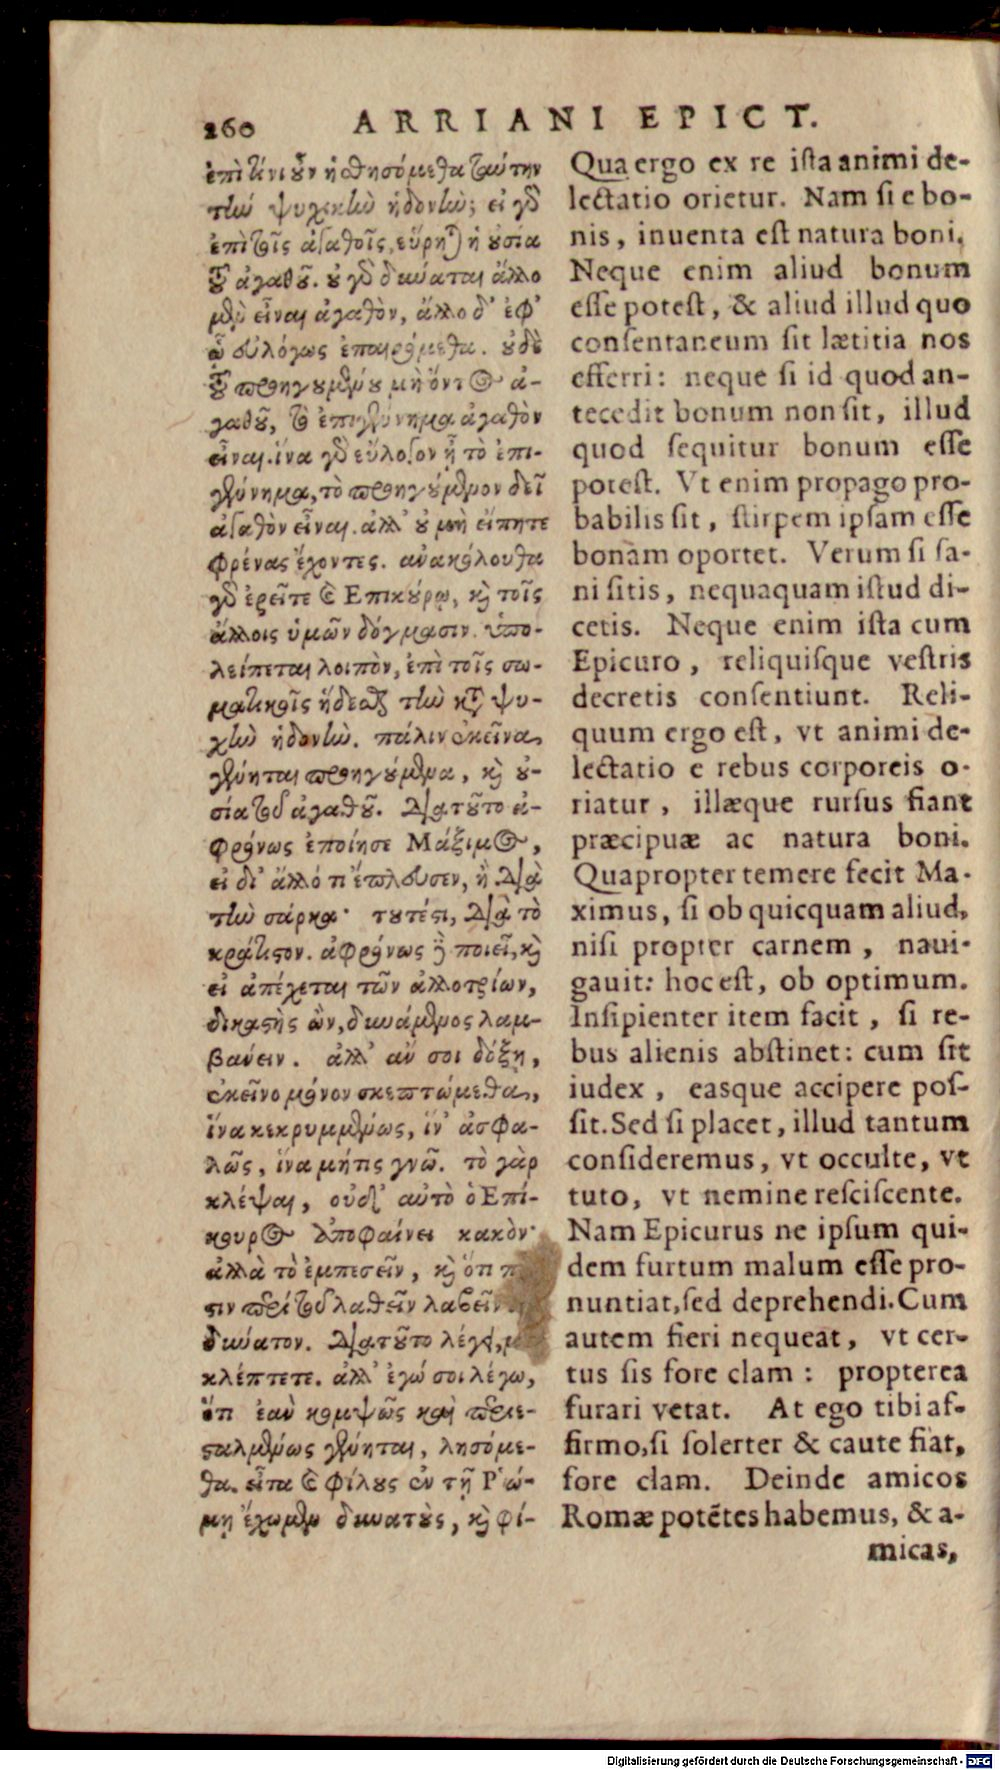 260 ARRIANI EPICT.
ἐπὶ τίνι οὖν ἡσθησόμεθα ταύτην
τὴν ψυχικὴν ἡδονήν; εἰ γὸ
ἐπὶ τοῖς ἀγαθοῖς, εὕρηται ἡ οὐσία
τοῦ ἀγαθοῦ. οὐ γὸ δύναται ἄλλο
μὲν εἶναι ἀγαθὸν, ἄλλο δ' ἐφ'
ᾧ εὐλόγως ἐπαιρόμεθα. οὐδὲ
τοῦ προηγουμένου μὴ ὄντος ἀ-
γαθοῦ, τὸ ἐπιγέννημα ἀγαθὸν
εἶναι. ἵνα γὸ εὔλογον ᾖ τὸ ἐπι-
γέννημα, τὸ προηγούμενον δεῖ
ἀγαθὸν εἶναι. ἀλλ' οὐ μὴ εἴπητε
φρένας ἔχοντες. ἀνακόλουθα
γὸ ἐρεῖτε ϗ Ἐπικούρῳ, ϗ τοῖς
ἄλλοις ὑμῶν δόγμασιν. ὑπο-
λείπεται λοιπὸν, ἐπὶ τοῖς σω-
ματικοῖς ἥδεσθαι τὴν κατὰ ψυ-
χὴν ἡδονήν. πάλιν ἐκεῖνα
γίνεται προηγούμενα, ϗ οὐ-
σία τοῦ ἀγαθοῦ. Διὰ τοῦτο ἀ-
φρόνως ἐποίησε Μάξιμος,
εἰ δι' ἄλλό τι ἔπλευσεν, ἢ Διὰ
τὴν σάρκα· τουτέστι, Διὰ τὸ
κράτιστον. ἀφρόνως ἢ ποιεῖ, ϗ
εἰ ἀπέχεται τῶν ἀλλοτρίων,
δικαστὴς ὢν, δυνάμενος λαμ-
βάνειν. ἀλλ' ἄν σοι δόξῃ,
ἐκεῖνο μόνον σκεπτώμεθα,
ἵνα κεκρυμμένως, ἵν' ἀσφα-
λῶς, ἵνα μήτις γνῶ. τὸ γὰρ
κλέψαι, οὐδ' αὐτὸ ὁ Ἐπί-
κουρος ἀποφαίνει κακὸν·
ἀλλὰ τὸ ἐμπεσεῖν, ϗ ὅτι
στιν περὶ τοῦ λαθεῖν λαβεῖν
δύνατον. Διὰ τοῦτο λέγει,
κλέπτετε. ἀλλ' ἐγώ σοι λέγω,
ὅτι ἐὰν κομψῶς καὶ περιε-
σταλμένως γένηται, λησόμε-
θα. εἶτα ϗ φίλους ἐν τῇ Ῥώ-
μῃ ἔχομεν δυνατοὺς, ϗ φί-
Qua ergo ex re ista animi de-
lectatio orietur. Nam si e bo-
nis, inuenta est natura boni.
Neque enim aliud bonum
esse potest, & aliud illud quo
consentaneum sit lætitia nos
efferri: neque si id quod an-
tecedit bonum non sit, illud
quod sequitur bonum esse
potest. Vt enim propago pro-
babilis sit, stirpem ipsam esse
bonam oportet. Verum si sa-
ni sitis, nequaquam istud di-
cetis. Neque enim ista cum
Epicuro, reliquisque vestris
decretis consentiunt. Reli-
quum ergo est, vt animi de-
lectatio e rebus corporeis o-
riatur, illæque rursus fiant
præcipuæ ac natura boni.
Quapropter temere fecit Ma-
ximus, si ob quicquam aliud,
nisi propter carnem, naui-
gauit: hoc est, ob optimum.
Insipienter item facit, si re-
bus alienis abstinet: cum sit
iudex, easque accipere pos-
sit. Sed si placet, illud tantum
consideremus, vt occulte, vt
tuto, vt nemine resciscente.
Nam Epicurus ne ipsum qui-
dem furtum malum esse pro-
nuntiat, sed deprehendi. Cum
autem fieri nequeat, vt cer-
tus sis fore clam: propterea
furari vetat. At ego tibi af-
firmo, si solerter & caute fiat,
fore clam. Deinde amicos
Romæ potētes habemus, & a-
micas,
Digitalisierung gefördert durch die Deutsche Forschungsgemeinschaft - DFG